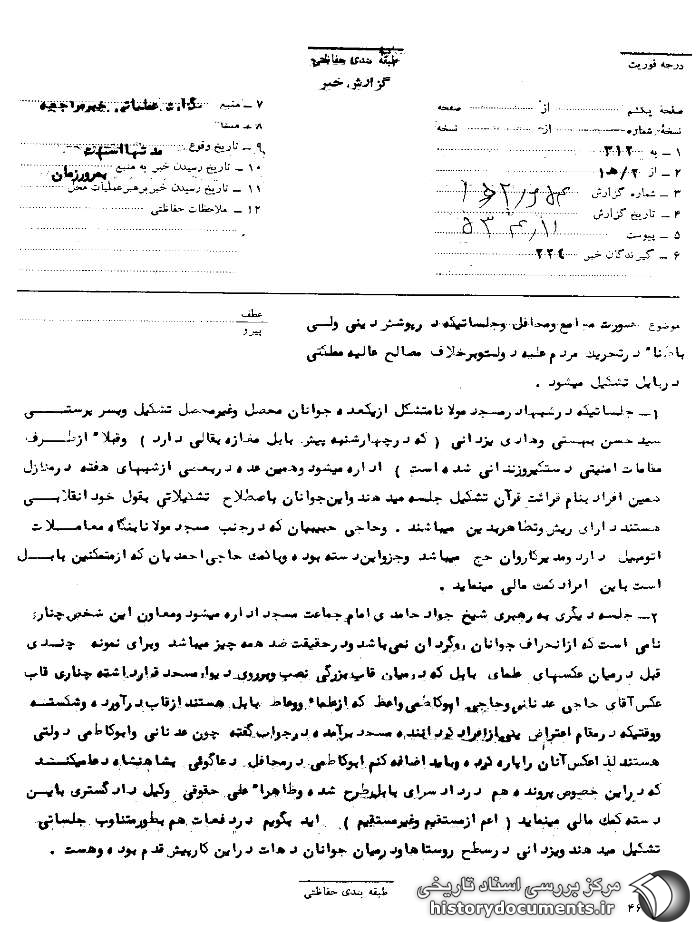 طبقه بندی حفاظتی
گزارش خبر
درجه فوریت
صفحه یکم از صفحه
نسخهٔ شماره از نسخه
۱ – به ۳۱۲
۲ – از ۲/ﻫ۱
۳ – شماره گزارش
۴ – تاریخ گزارش ۵۳٫۴٫۱۱
۵ – پیوست
۶ – گیرندگان خبر ۲۲۴
۷ – منبع
۸ – منشا
۹ – تاریخ وقوع مدتهااست
۱۰ – تاریخ رسیدن خبر به منبع بمرورزمان
۱۱ – تاریخ رسیدن خبر برهبر عملیات محل
۱۲ – ملاحظات حفاظتی
عطف
پیرو
موضوع صورت مجامع ومحافل وجلساتیکه در پوشش دینی ولی
باطناً در تحریک مردم علیه دولت وبرخلاف مصالح عالیه مملکتی
در بابل تشکیل میشود .
۱– جلساتیکه در شبها در مسجد مولانا متشکل از یکعده جوانان محصل وغیرمحصل تشکیل وبسر پرستی
سید حسن بهشتی وهادی یزدانی ( که در چهارشنبه پیش بابل مغازه بقالی دارد ) وقبلاً از طرف
مقامات امنیتی دستگیر وزندانی شده است ) اداره میشود وهمین عده در بعضی از شبهای هفته در منازل
همین افراد بنام قرائت قرآن تشکیل جلسه میدهند واین جوانان باصطلاح تشکیلاتی بقول خود انقلابی
هستند دارای ریش وتظاهر بدین میباشند . وحاجی حبیبیان که در جنب مسجد مولانا بنگاه معاملات
اتومبیل دارد ومدیر کاروان حج میباشد وجزو این دسته بوده وباکمک حاجی احمدیان که از متمکنین بابل
است باین افراد کمک مالی مینماید .
۲– جلسه دیگری به رهبری شیخ جواد حامدی امام جماعت مسجد اداره میشود ومعاون این شخص چناری
نامی است که از انحراف جوانان روگردان نمی باشد ودر حقیقت ضد همه چیز میباشد وبرای نمونه چندی
قبل در میان عکسهای علمای بابل که در میان قاب بزرگی نصب وبرروی دیوار مسجد قرار داشته چناری قاب
عکس آقای حاجی عدنانی وحاجی ابوکاظمی واعظ که از علماء ووعاظ بابل هستند از قاب درآورده وشکسته
ووقتیکه در مقام اعتراض یکی از افراد اداره کننده مسجد برآمده در جواب گفته چون عدنانی وابوکاظمی دولتی
هستند لذا عکس آنان را پاره کرده وباید اضافه کنم ابوکاظمی در محافل دعاگوئی بشاهنشاه دعا میکنند
که در این خصوص پرونده هم در دادسرای بابل طرح شده وظاهراً علی حقوقی وکیل دادگستری باین
دسته کمک مالی مینماید ( اعم از مستقیم وغیرمستقیم ) باید بگویم در دفعات هم بطور متناوب جلساتی
تشکیل میدهند ویزدانی در سطح روستاها ودر میان جوانان دهات در این کار پیش قدم بوده وهست .
طبقه بندی حفاظتی
مرکز بررسی اسناد تاریخی
historydocuments.ir
۴۶